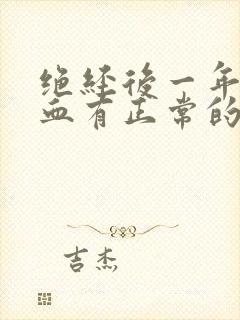 绝经後一年
血有正常的
吉杰